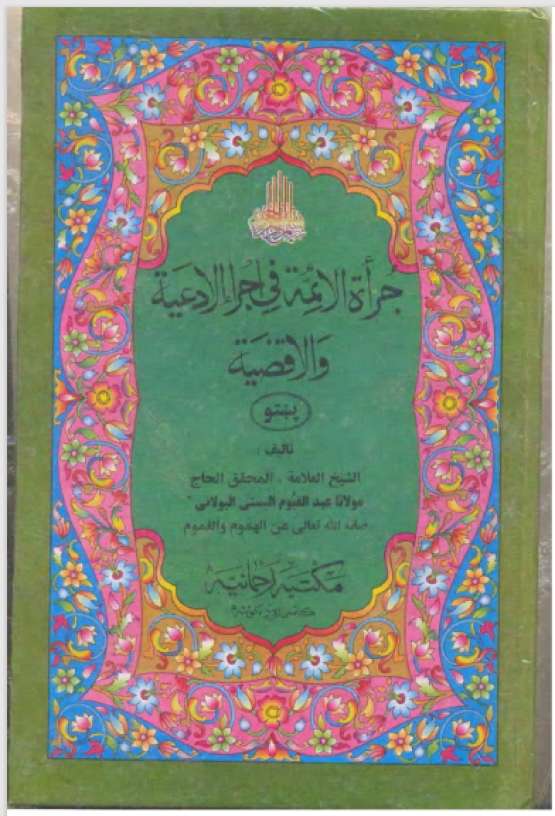 جُرأة الائمة في اجراء الادعية
والاقضية
پښتو
تاليف :
الشيخ العلامة ، المحقق الحاج
مولانا عبد القيوم البستي البولاني
الله تعالى عن الهموم والغموم
مكتبه رحمانيه